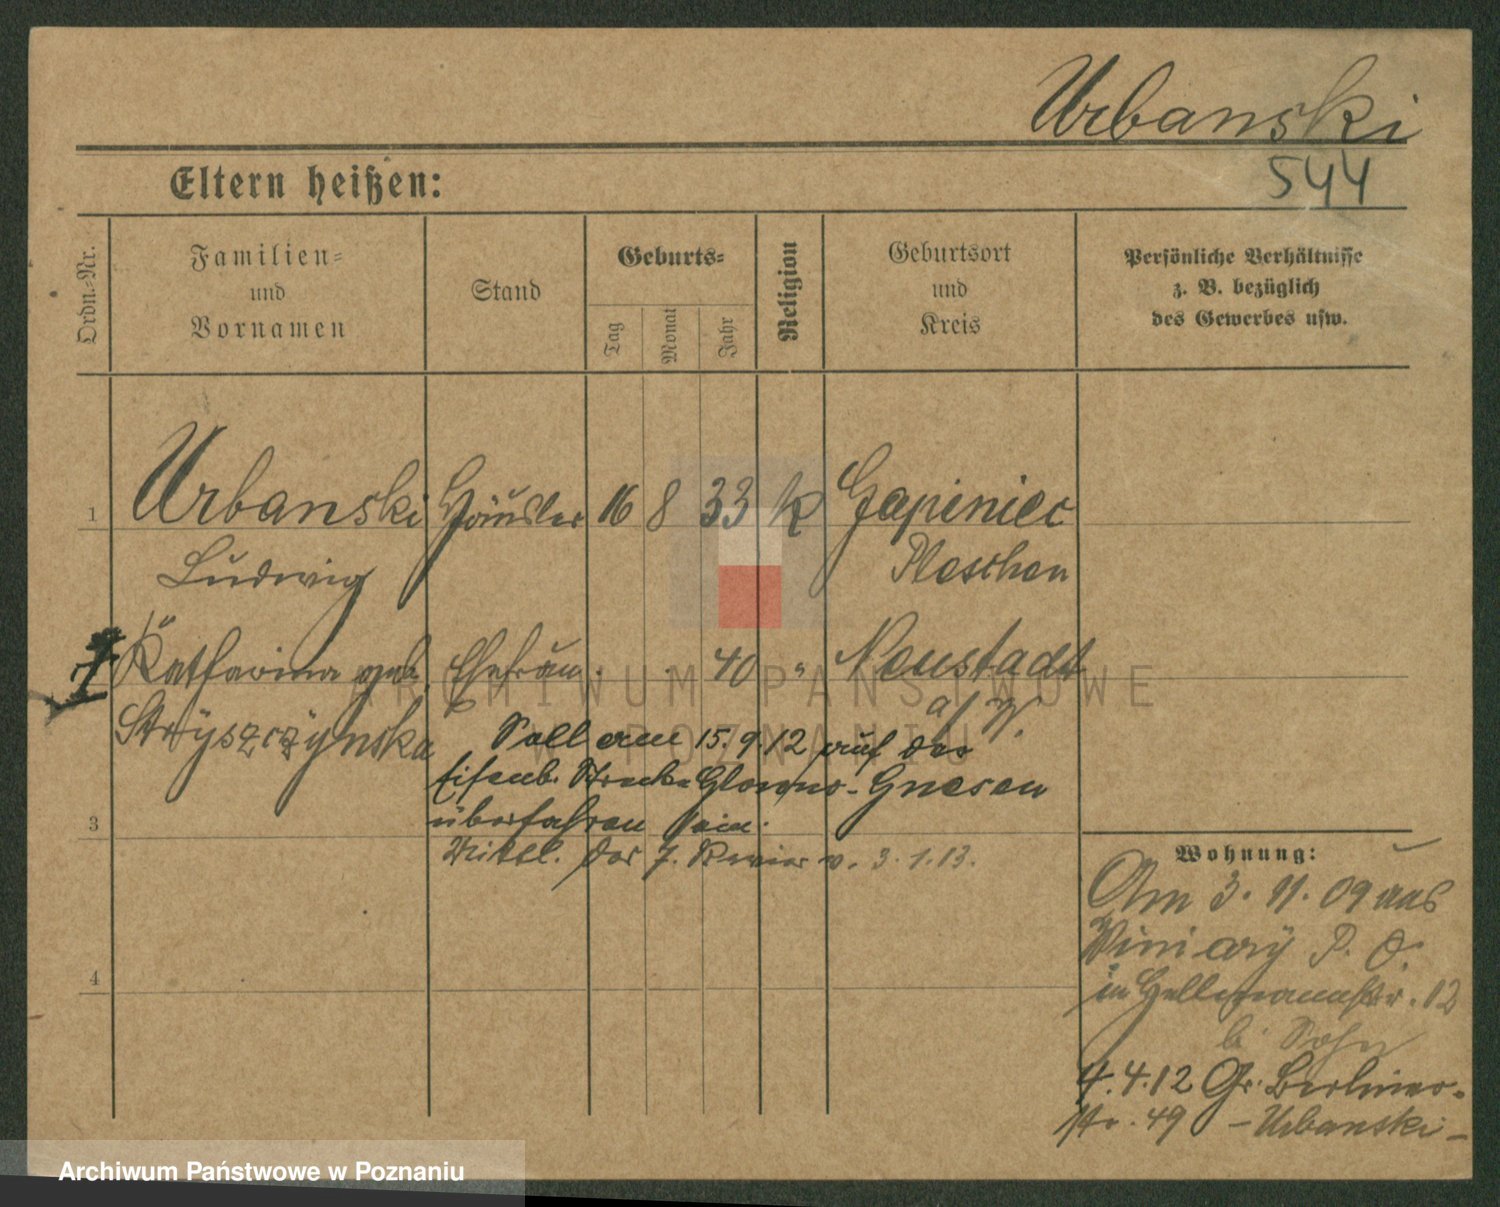 Urbanski
544
Eltern heißen:
Ordn.-Nr.
Familien-
und
Vornamen
Stand
Geburts-
Tag
Monat
Jahr
Religion
Geburtsort
und
Kreis
Persönliche Verhältnisse
z. B. bezüglich
des Gewerbes usw.
1 Urbanski Häusler 16 8 33 k
Ludwig Pleschen
Katharina geb. Ehefrau . . 40 " Neustadt
a/W.
Soll am 15.9.12 auf der
Eisenb. Strecke Glowno-Gnesen
überfahren sein.
3
Mittl. der 7. Revier v. 3.1.13.
4
Wohnung:
Am 3.11.09 aus
Winiary P. O.
in 12
b. Sohn
4.4.12 Gr. Berliner-
str. 49 - Urbanski -
ARCHIWUM PAŃSTWOWE
W POZNANIU
Archiwum Państwowe w Poznaniu